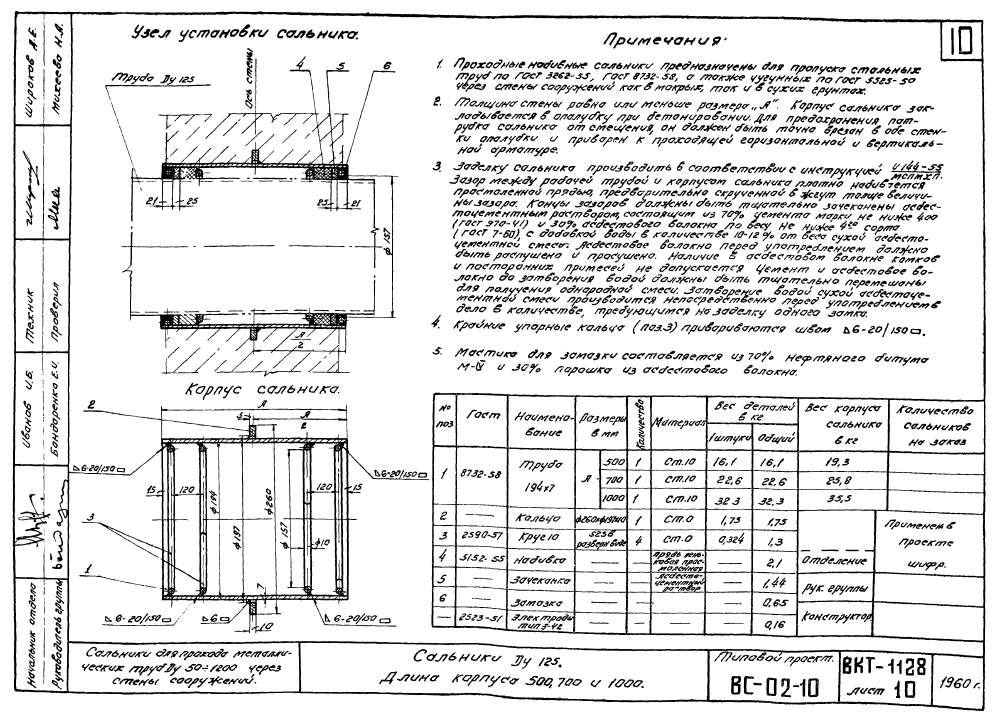 Узел установки сальника.
Труба Ду 125
Ось стены
4
5
6
21
25
25
21
ф 157
Л
2
Корпус сальника.
Л
5
Л
2
2
6-20/150
6-20/150
15
120
ф 194
ф 197
ф 260
ф 157
ф10
120
15
3
1
7
6-20/150
6
6-20/150
10
10
Примечания.
1. Проходные набивные сальники предназначены для пропуска стальных
труб по ГОСТ 3262-55, ГОСТ 8732-58, а также чугунных по ГОСТ 5525-50
через стены сооружений как в мокрых, так и в сухих грунтах.
2. Толщина стены равна или меньше размера „Л". Корпус сальника зак-
ладывается в опалубку при бетонировании. Для предохранения, пат-
рубка сальника от смещения, он должен быть точно врезан в обе стен-
ки опалубки и приварен к проходящей горизонтальной и вертикаль-
ной арматуре.
3. Заделку сальника производить в соответствии с инструкцией И144-55
МСПМХП.
Зазор между рабочей трубой и корпусом сальника плотно набивается
просмоленной прядью, предварительно скрученной в жгут толще величи-
ны зазора. Концы зазоров должны быть тщательно зачеканены асбес-
тоцементным раствором, состоящим из 70% цемента марки не ниже 400
(ГОСТ 970-41) и 30% асбестового волокна по весу не ниже 4го сорта
(ГОСТ 7-60), с добавкой воды в количестве 10-12% от веса сухой асбесто-
цементной смеси. Асбестовое волокно перед употреблением должно
быть распушено и просушено. Наличие в асбестовом волокне комков
и посторонних примесей не допускается. Цемент и асбестовое во-
локно до затворения водой должны быть тщательно перемешаны
для получения однородной смеси. Затворение водой сухой асбестоце-
ментной смеси производится непосредственно перед употреблением в
дело в количестве, требующимся на заделку одного замка.
4. Крайние упорные кольца (поз.3) привариваются швом 6-20/150.
5. Мастика для замазки составляется из 70% нефтяного битума
М-IV и 30% порошка из асбестового волокна.
№ поз | Гост | Наимено-вание | Размеры в мм | Количество | Материал | Вес деталей в кг | Вес корпуса сальника в кг | Количество сальников на заказ
1 штуки | Общий
1 | 8732-58 | Труба 194х7 | Л | 500 | 1 | Ст.10 | 16,1 | 16,1 | 19,3
700 | 1 | Ст.10 | 22,6 | 22,6 | 25,8
1000 | 1 | Ст.10 | 32.3 | 32,3 | 35,5
2 | — | Кольцо | ф260хф197х10 | 1 | Ст.0 | 1,75 | 1,75
3 | 2590-57 | Круг 10 | 525 в разверн виде | 4 | Ст.0 | 0,324 | 1,3
4 | 5152-55 | Набивка | — | — | Прядь пень-ковая прос-моленная | — | 2,1
5 | — | Зачеканка | — | — | Асбесто-цементный раствор | — | 1,44
6 | — | Замазка | — | — | — | — | 0,65
— | 2523-51 | Электроды тип Э-42 | — | — | — | — | 0,16
Применен в
проекте
Отделение
шифр.
Рук. группы
Конструктор
Сальники для прохода металли-
ческих труб Ду 50÷1200 через
стены сооружений.
Сальники Ду 125.
Длина корпуса 500, 700 и 1000.
Типовой проект.
ВС-02-10
ВКТ-1128
лист 10
1960 г.
Начальник отдела
Иванов И.Б.
Техник
Широков А.Е.
Руководитель группы
Бондаренко Е.И.
Проверил
Михеева Н.А.